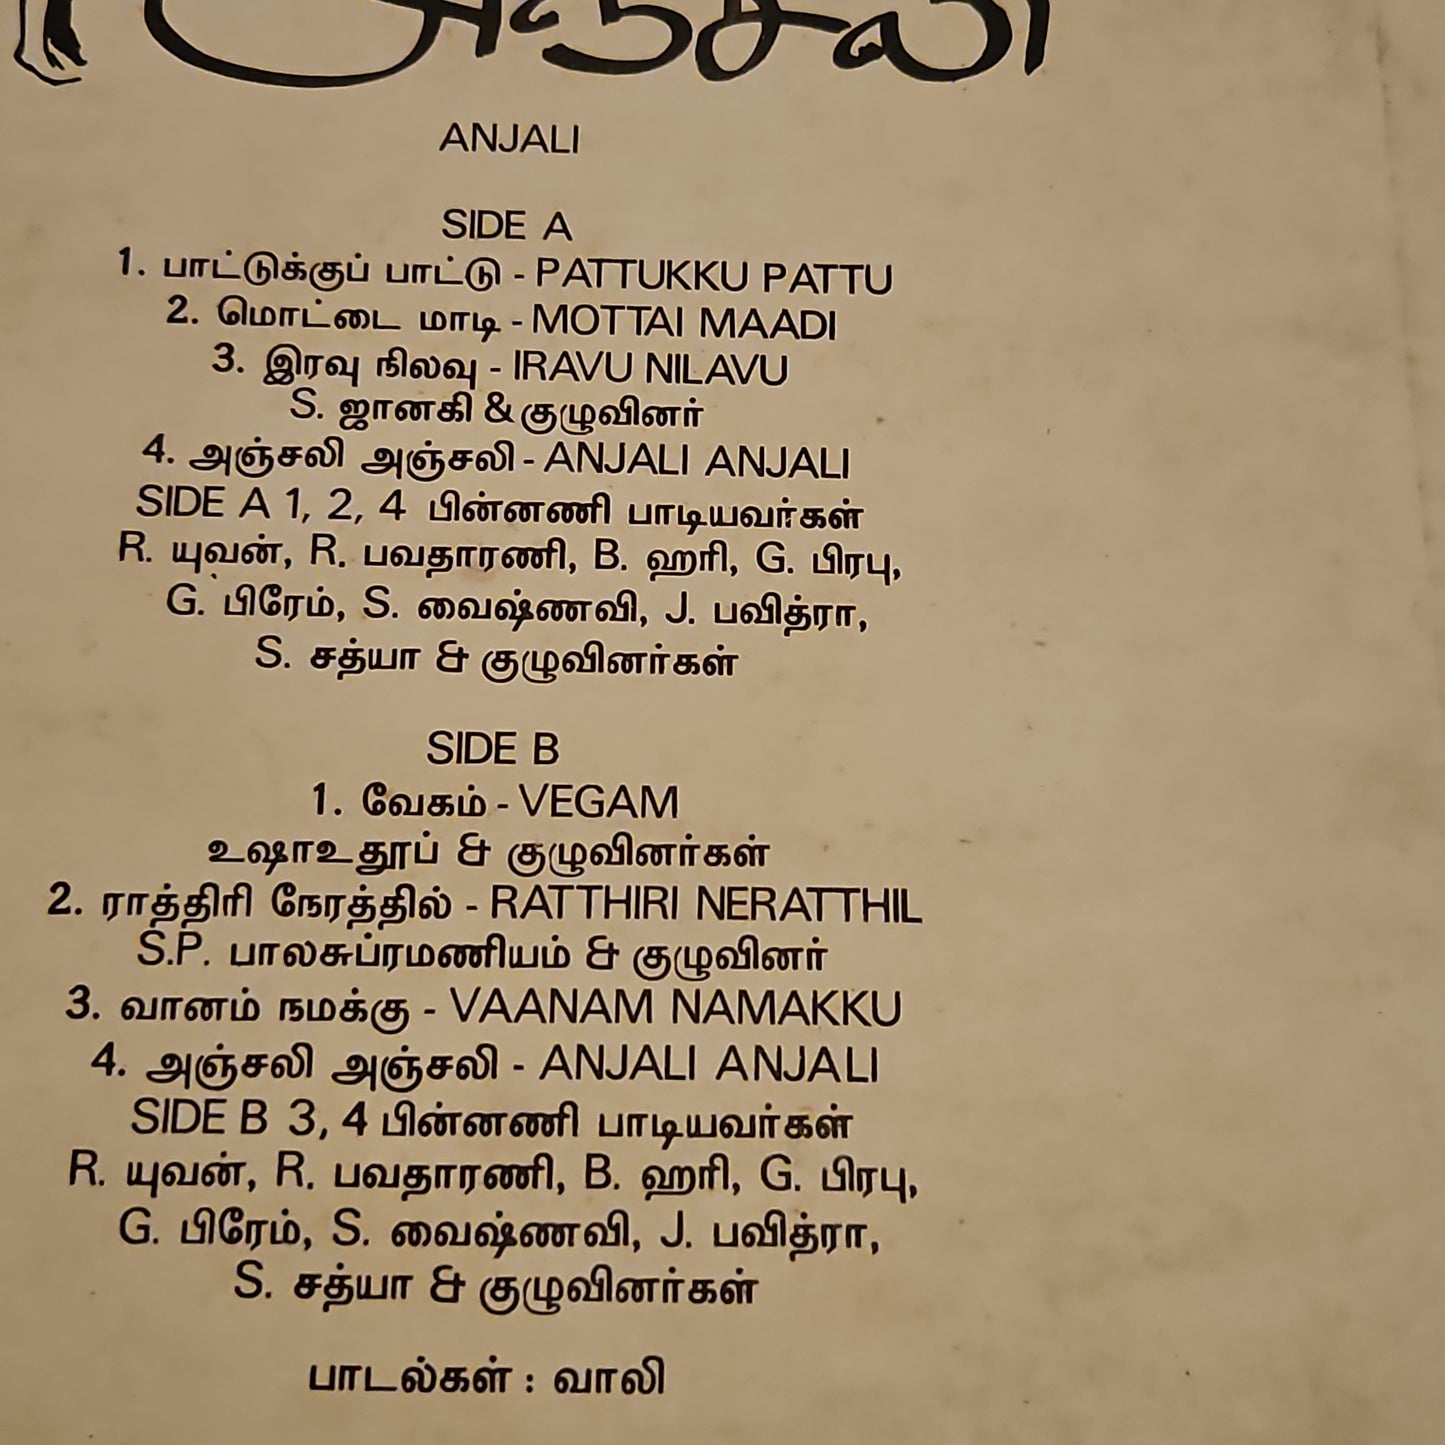 அஞ்சலி
ANJALI
SIDE A
1. பாட்டுக்குப் பாட்டு - PATTUKKU PATTU
2. மொட்டை மாடி - MOTTAI MAADI
3. இரவு நிலவு - IRAVU NILAVU
S. ஜானகி & குழுவினர்
4. அஞ்சலி அஞ்சலி - ANJALI ANJALI
SIDE A 1, 2, 4 பின்னணி பாடியவர்கள்
R. யுவன், R. பவதாரணி, B. ஹரி, G. பிரபு,
G. பிரேம், S. வைஷ்ணவி, J. பவித்ரா,
S. சத்யா & குழுவினர்கள்
SIDE B
1. வேகம் - VEGAM
உஷாஉதூப் & குழுவினர்கள்
2. ராத்திரி நேரத்தில் - RATTHIRI NERATTHIL
S.P. பாலசுப்ரமணியம் & குழுவினர்
3. வானம் நமக்கு - VAANAM NAMAKKU
4. அஞ்சலி அஞ்சலி - ANJALI ANJALI
SIDE B 3, 4 பின்னணி பாடியவர்கள்
R. யுவன், R. பவதாரணி, B. ஹரி, G. பிரபு,
G. பிரேம், S. வைஷ்ணவி, J. பவித்ரா,
S. சத்யா & குழுவினர்கள்
பாடல்கள் : வாலி